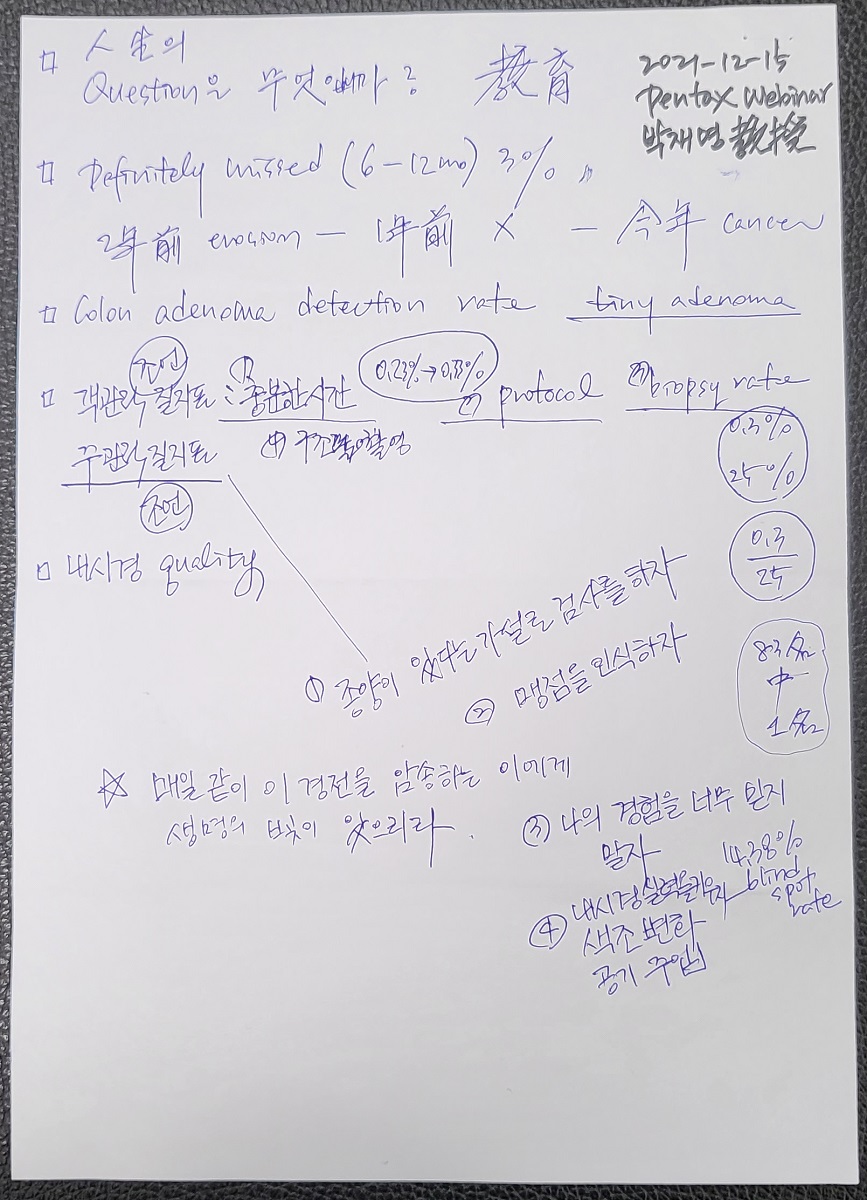 2021-12-15
Pentax Webinar
박재명 教授
ㅁ 人生의
Question은 무엇입니까? 教育
ㅁ Definitely missed (6-12mo) 3%
2年前 erosion - 1年前 X - 今年 cancer
ㅁ Colon adenoma detection rate tiny adenoma
조언
ㅁ 객관적 질지표 : ① 충분한 시간 0.23%→0.33% ② protocol ③ biopsy rate
주관적 질지표 ④ 구조적
조언
0.3%
25%
ㅁ 내시경 quality
0.3
25
① 종양이 있다는 가설로 검사를 하자
② 맹점을 인식하자
83名
中
1名
☆ 매일 같이 이 경전을 암송하는 이에게
생명의 빛이 있으리라.
③ 나의 경험을 너무 믿지
말자
④ 내시경 실력을 키우자
색조 변화
공기 주입
14.38%
blind
spot
rate